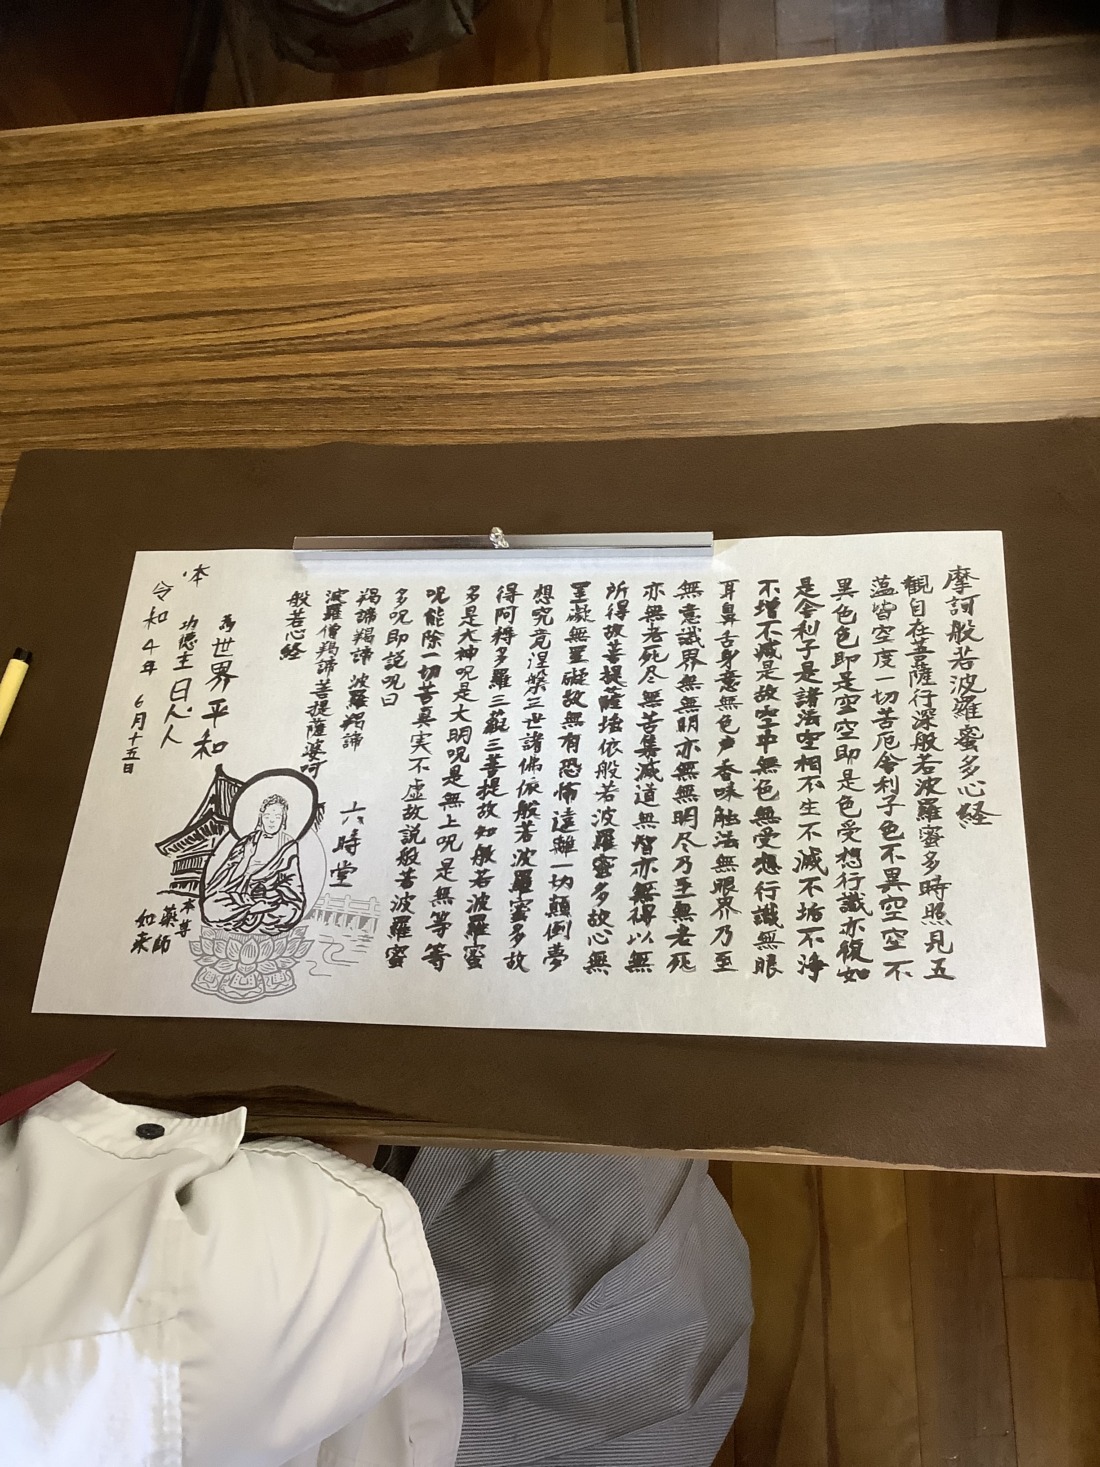 摩訶般若波羅蜜多心経
観自在菩薩行深般若波羅蜜多時照見五
蘊皆空度一切苦厄舎利子色不異空空不
異色色即是空空即是色受想行識亦復如
是舎利子是諸法空相不生不滅不垢不浄
不増不減是故空中無色無受想行識無眼
耳鼻舌身意無色声香味触法無眼界乃至
無意識界無無明亦無無明尽乃至無老死
亦無老死尽無苦集滅道無智亦無得以無
所得故菩提薩埵依般若波羅蜜多故心無
罣礙無罣礙故無有恐怖遠離一切顛倒夢
想究竟涅槃三世諸佛依般若波羅蜜多故
得阿耨多羅三藐三菩提故知般若波羅蜜
多是大神呪是大明呪是無上呪是無等等
呪能除一切苦真実不虚故説般若波羅蜜
多呪即説呪曰
羯諦羯諦 波羅羯諦
波羅僧羯諦菩提薩婆呵
般若心経
六時堂
為世界平和
功徳主
令和4年 6月十五日
本尊
薬師
如来